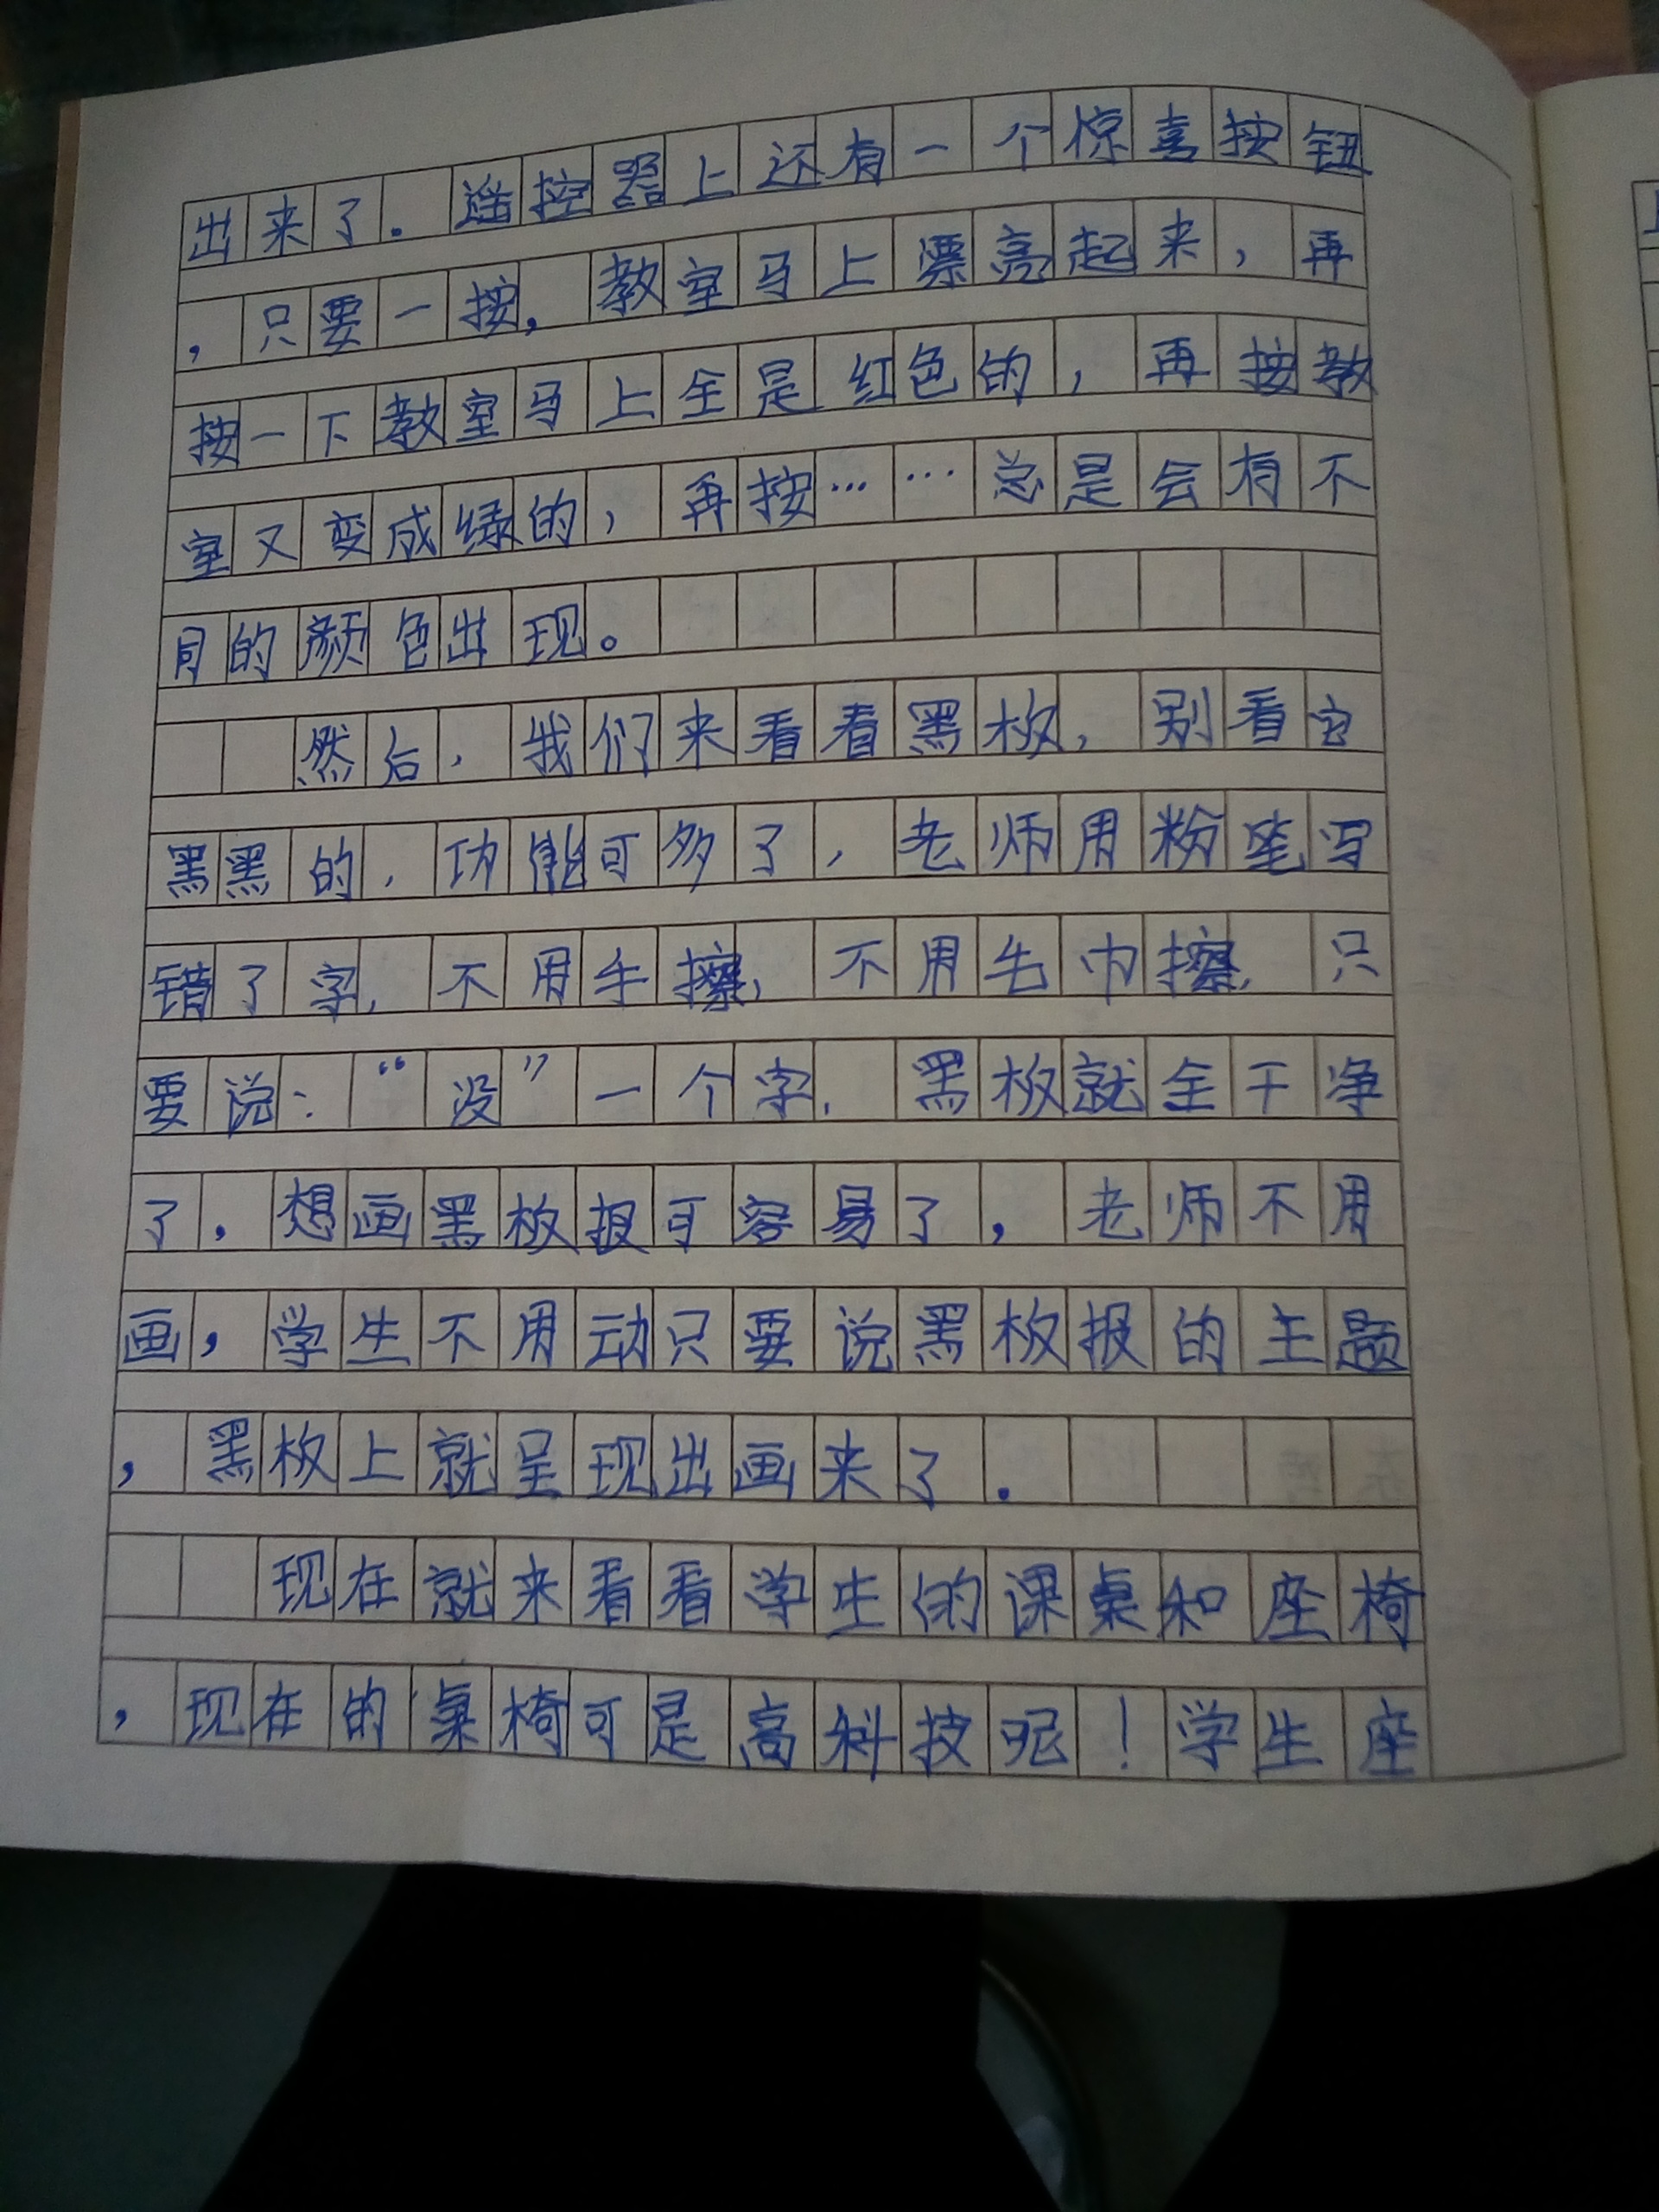 出来了.遥控器上还有一个惊喜按钮
,只要一按,教室马上漂亮起来,再
按一下教室马上全是红色的,再按教
室又变成绿的,再按……总是会有不
同的颜色出现。
然后,我们来看看黑板,别看它
黑黑的,功能可多了,老师用粉笔写
错了字,不用手擦,不用毛巾擦,只
要说:“没”一个字,黑板就全干净
了,想画黑板报可容易了,老师不用
画,学生不用动只要说黑板报的主题
,黑板上就呈现出画来了.
现在就来看看学生的课桌和座椅
,现在的桌椅可是高科技呢!学生座